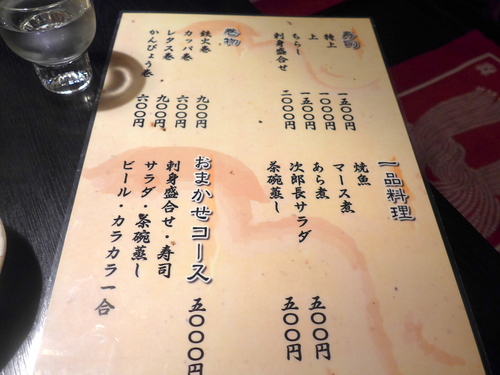 特上 一五〇〇円
上 一〇〇〇円
ちらし 一五〇〇円
刺身盛合せ 二〇〇〇円
巻物
鉄火巻 九〇〇円
カッパ巻 六〇〇円
レタス巻 九〇〇円
かんぴょう巻 六〇〇円
一品料理
焼魚
マース煮
あら煮
次郎長サラダ 五〇〇円
茶碗蒸し 五〇〇円
おまかせコース 五〇〇〇円
刺身盛合せ・寿司
サラダ・茶碗蒸し
ビール・カラカラ一合